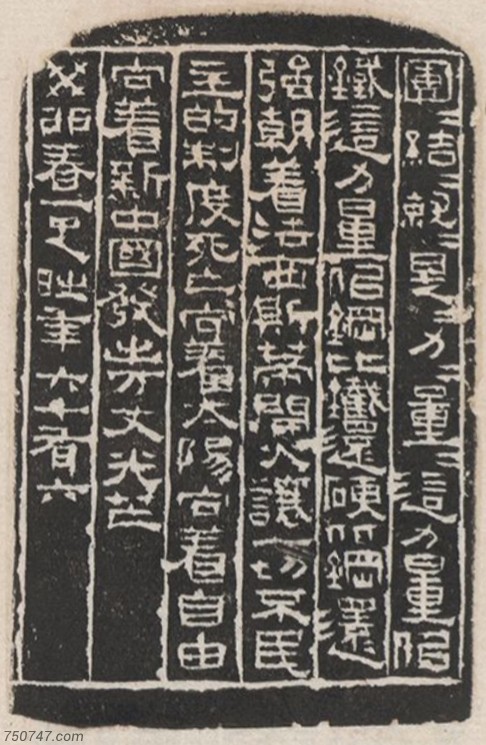 團〻結〻就〻是〻力〻量〻這力量佀
鐵這力量佀鋼比鐵還硬比鋼還
強朝着法西斯蒂開火讓一切不民
主的制度死亡向着太陽向着自由
向着新中國發出万丈光芒
癸卯春一年六十有六
750747.com